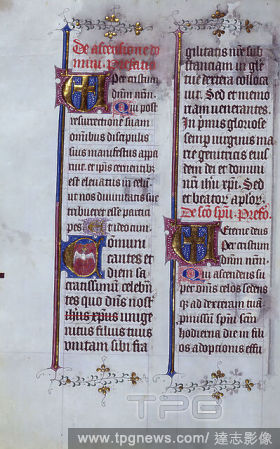 De ascensione do
mini. Prefatio
Per cristum
dnm nrm.
Qui post
resurrectionem suam
omnibus discipulis
suis manifestus appa
ruit. et ipis cernentib;
est eleuatus in celum
ut nos diuinitatis sue
tribueret esse partici
pes
Comuni
cantes et
diem sa
cratissimum celebran
tes quo dns nost
ihus xpus unige
nitus filius tuus
unitam sibi fra
gilitatis nre sub
stantiam in glorie
tue dextera colloca
uit. Sed et memo
riam uenerantes.
In pmis gloriose
semp uirginis ma
rie genitricis eius
dem dei et domi
ni ihu xpi. Sed
et beatorum aplor.
De sco spu. Prefo.
eterne deus
Per cristum
dnm nrm.
Qui ascendens su
per omnes celos sedens
q; ad dexteram tuam
pmissum spm scm
hodierna die in fili
os adoptionis effu
TPG
www.tpgnews.com/ 達志影像